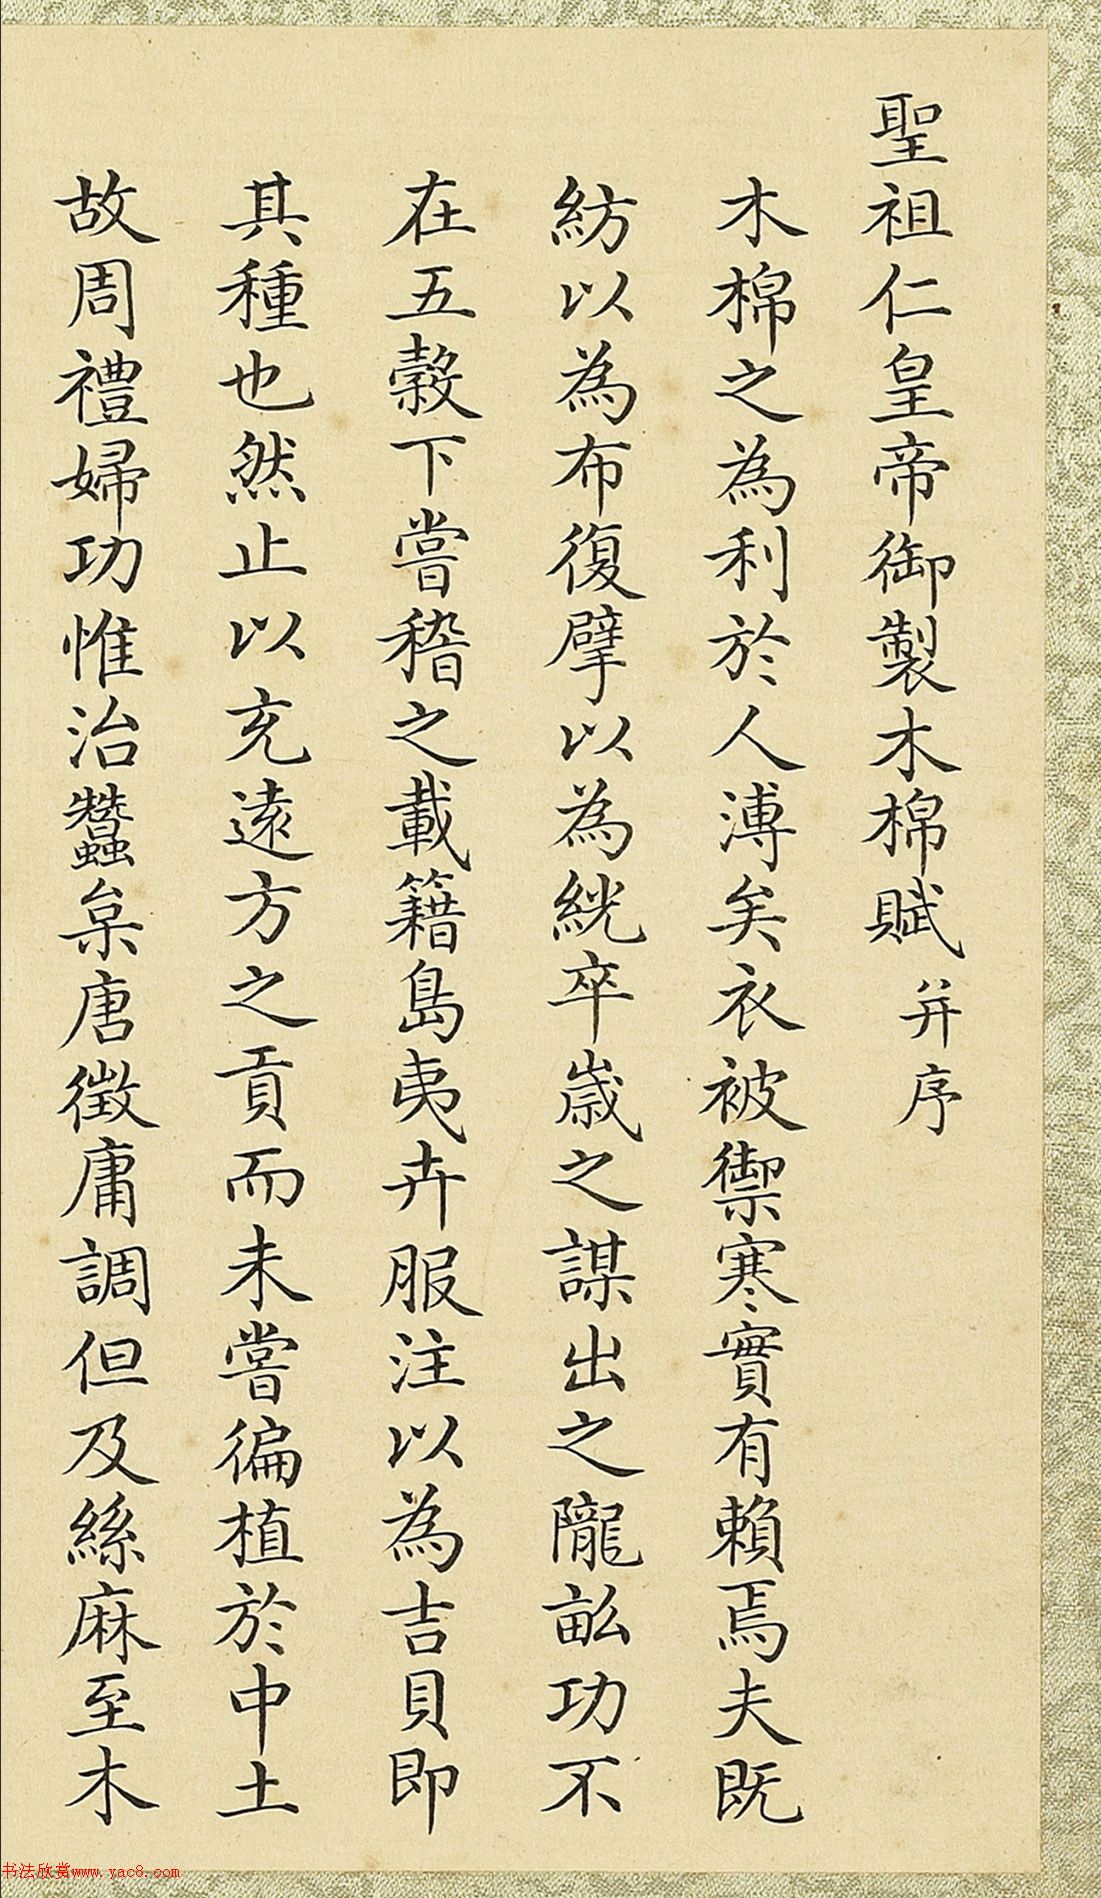 聖祖仁皇帝御製木棉賦并序
木棉之為利於人溥矣衣被禦寒實有賴焉夫既
紡以為布復擘以為絖卒歲之謀出之隴畝功不
在五穀下嘗稽之載籍島夷卉服注以為吉貝即
其種也然止以充遠方之貢而未嘗徧植於中土
故周禮婦功惟治蠶枲唐徵庸調但及絲麻至木
书法欣赏www.yac8.com